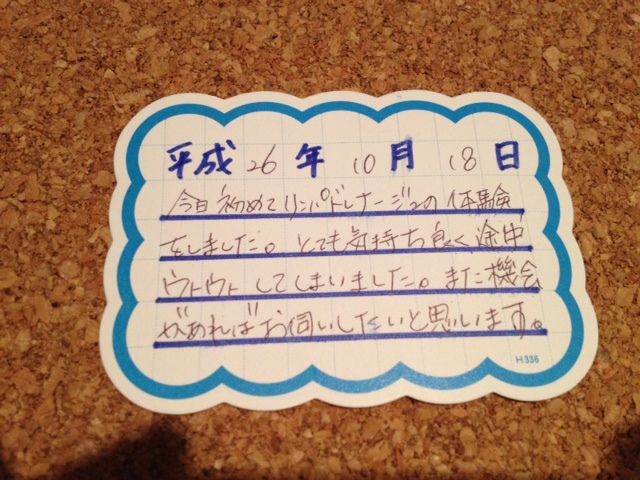 平成 26 年 10 月 18 日
今日初めてリンパドレナージュの体験
をしました。とても気持ち良く途中
ウトウトしてしまいました。また機会
があればお伺いしたいと思います。
H336